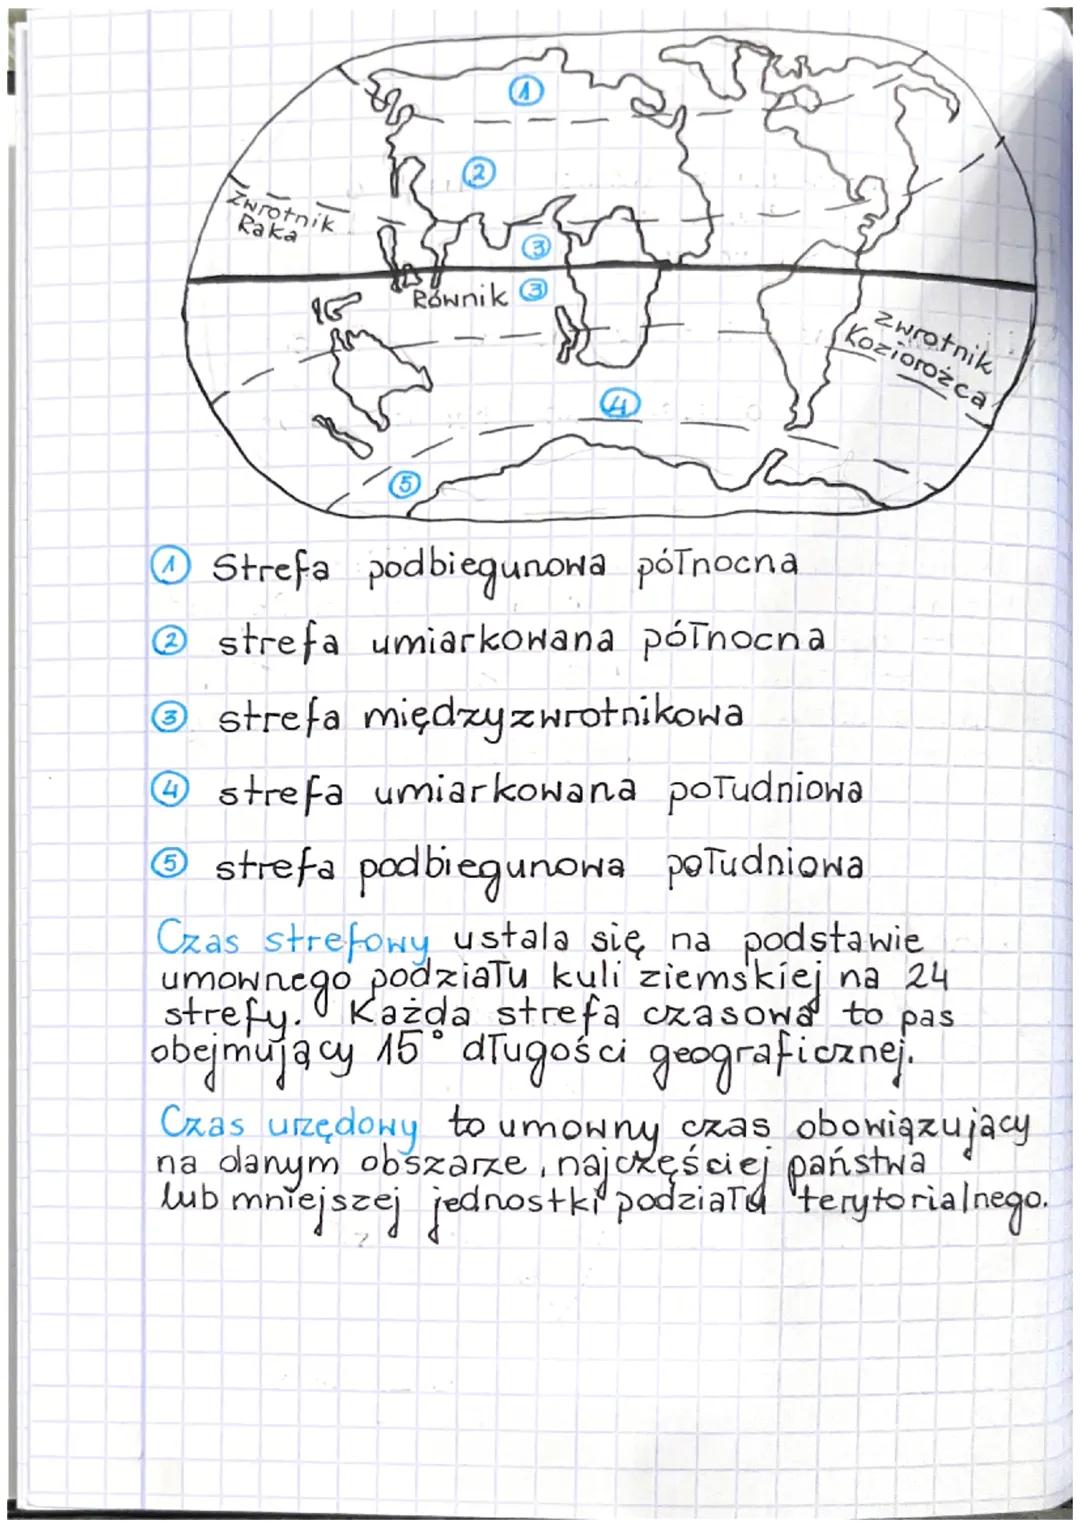 1
2
Zwrotnik
Raka
3
Równik 3
Zwrotnik
Koziorożca
4
5
1 Strefa podbiegunowa północna
2 strefa umiarkowana północna
3 strefa międzyzwrotnikowa
4 strefa umiarkowana południowa
5 strefa podbiegunowa południowa
Czas strefowy ustala się na podstawie
umownego podziału kuli ziemskiej na 24
strefy. Każda strefa czasowa to pas
obejmujący 15° długości geograficznej.
Czas urzędowy to umowny czas obowiązujący
na danym obszarze, najczęściej państwa
lub mniejszej jednostki podziału terytorialnego.